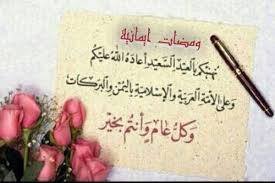 ومضات ايمانية
نهنئكم بالعيد السعيد أعاده الله عليكم
وعلى الأمة العربية والإسلامية باليمن والبركات
وكل عام وأنتم بخير